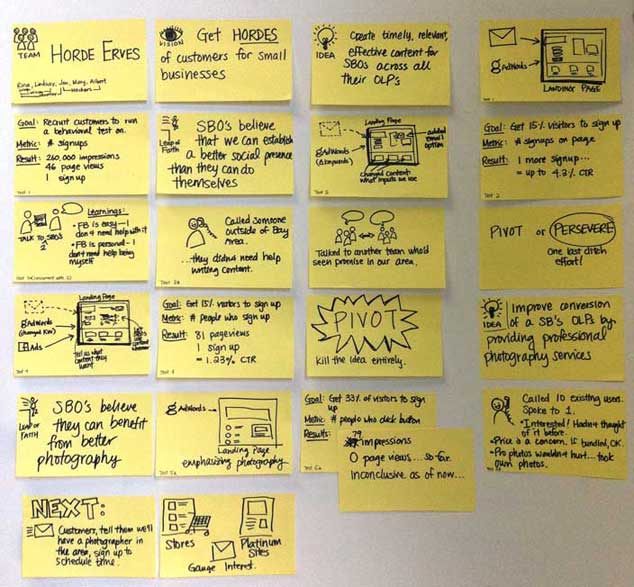 TEAM
HORDE ERVES
VISION
Get HORDES
of customers for small
businesses
IDEA
Create timely, relevant,
effective content for
SBOs across all
their OLP's
AdWords
LANDING PAGE
Goal: Recruit customers to run
a behavioral test on.
Metric: # signups
Result: 260,000 impressions
46 page views
1 sign up
Test 1
Leap of
Faith
SBO's believe
that we can establish
a better social presence
than they can do
themselves
Landing Page
AdWords
added
email
option
Changed Content:
what inputs we use
Goal: Get 15% visitors to sign up
Metric: # signups on page
Result: 1 more signup...
= up to 4.3% CTR
Test 2
TALK TO SBO'S
2
Learnings:
• FB is easy – I
don't need help with it
• FB is personal – I
don't need help being
myself
Called someone
outside of Bay
Area.
...they didn't need help
writing content.
Talked to another team who'd
seen promise in our area.
PIVOT or PERSEVERE
one last ditch
effort!
Landing Page
AdWords
Ads
Tell us what
content they
want
Goal: Get 15% visitors to sign up
Metric: # people who sign up
Result: 81 pageviews
1 sign up
= 1.23% CTR
PIVOT
Kill the idea entirely.
IDEA
Improve conversion
of a SB's OLPs by
providing professional
photography services
LEAP
OF FAITH
SBO's believe
they can benefit
from better
photography
AdWords
Landing Page
emphasizing photography
Goal: Get 33% of visitors to sign
up
Metric: # people who click button
Results:
79 impressions
0 page views... so far.
Inconclusive as of now...
Called 10 existing users.
Spoke to 1.
• Interested! Hadn't thought
of it before.
• Price is a concern. If bundled, OK.
• Pro photos wouldn't hurt... took
own photos.
NEXT:
Customers, tell them we'll
have a photographer in
the area, sign up to
schedule time.
Stores
Platinum
Sites
Gauge Interest.